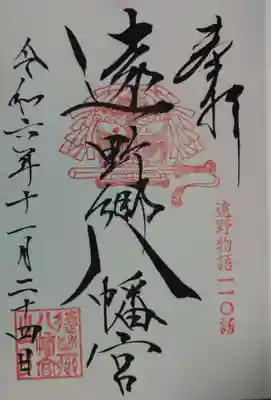 奉拝
遠野物語一一〇話
遠野郷八幡宮
令和六年十一月二十四日
遠野郷
八幡宮
之印